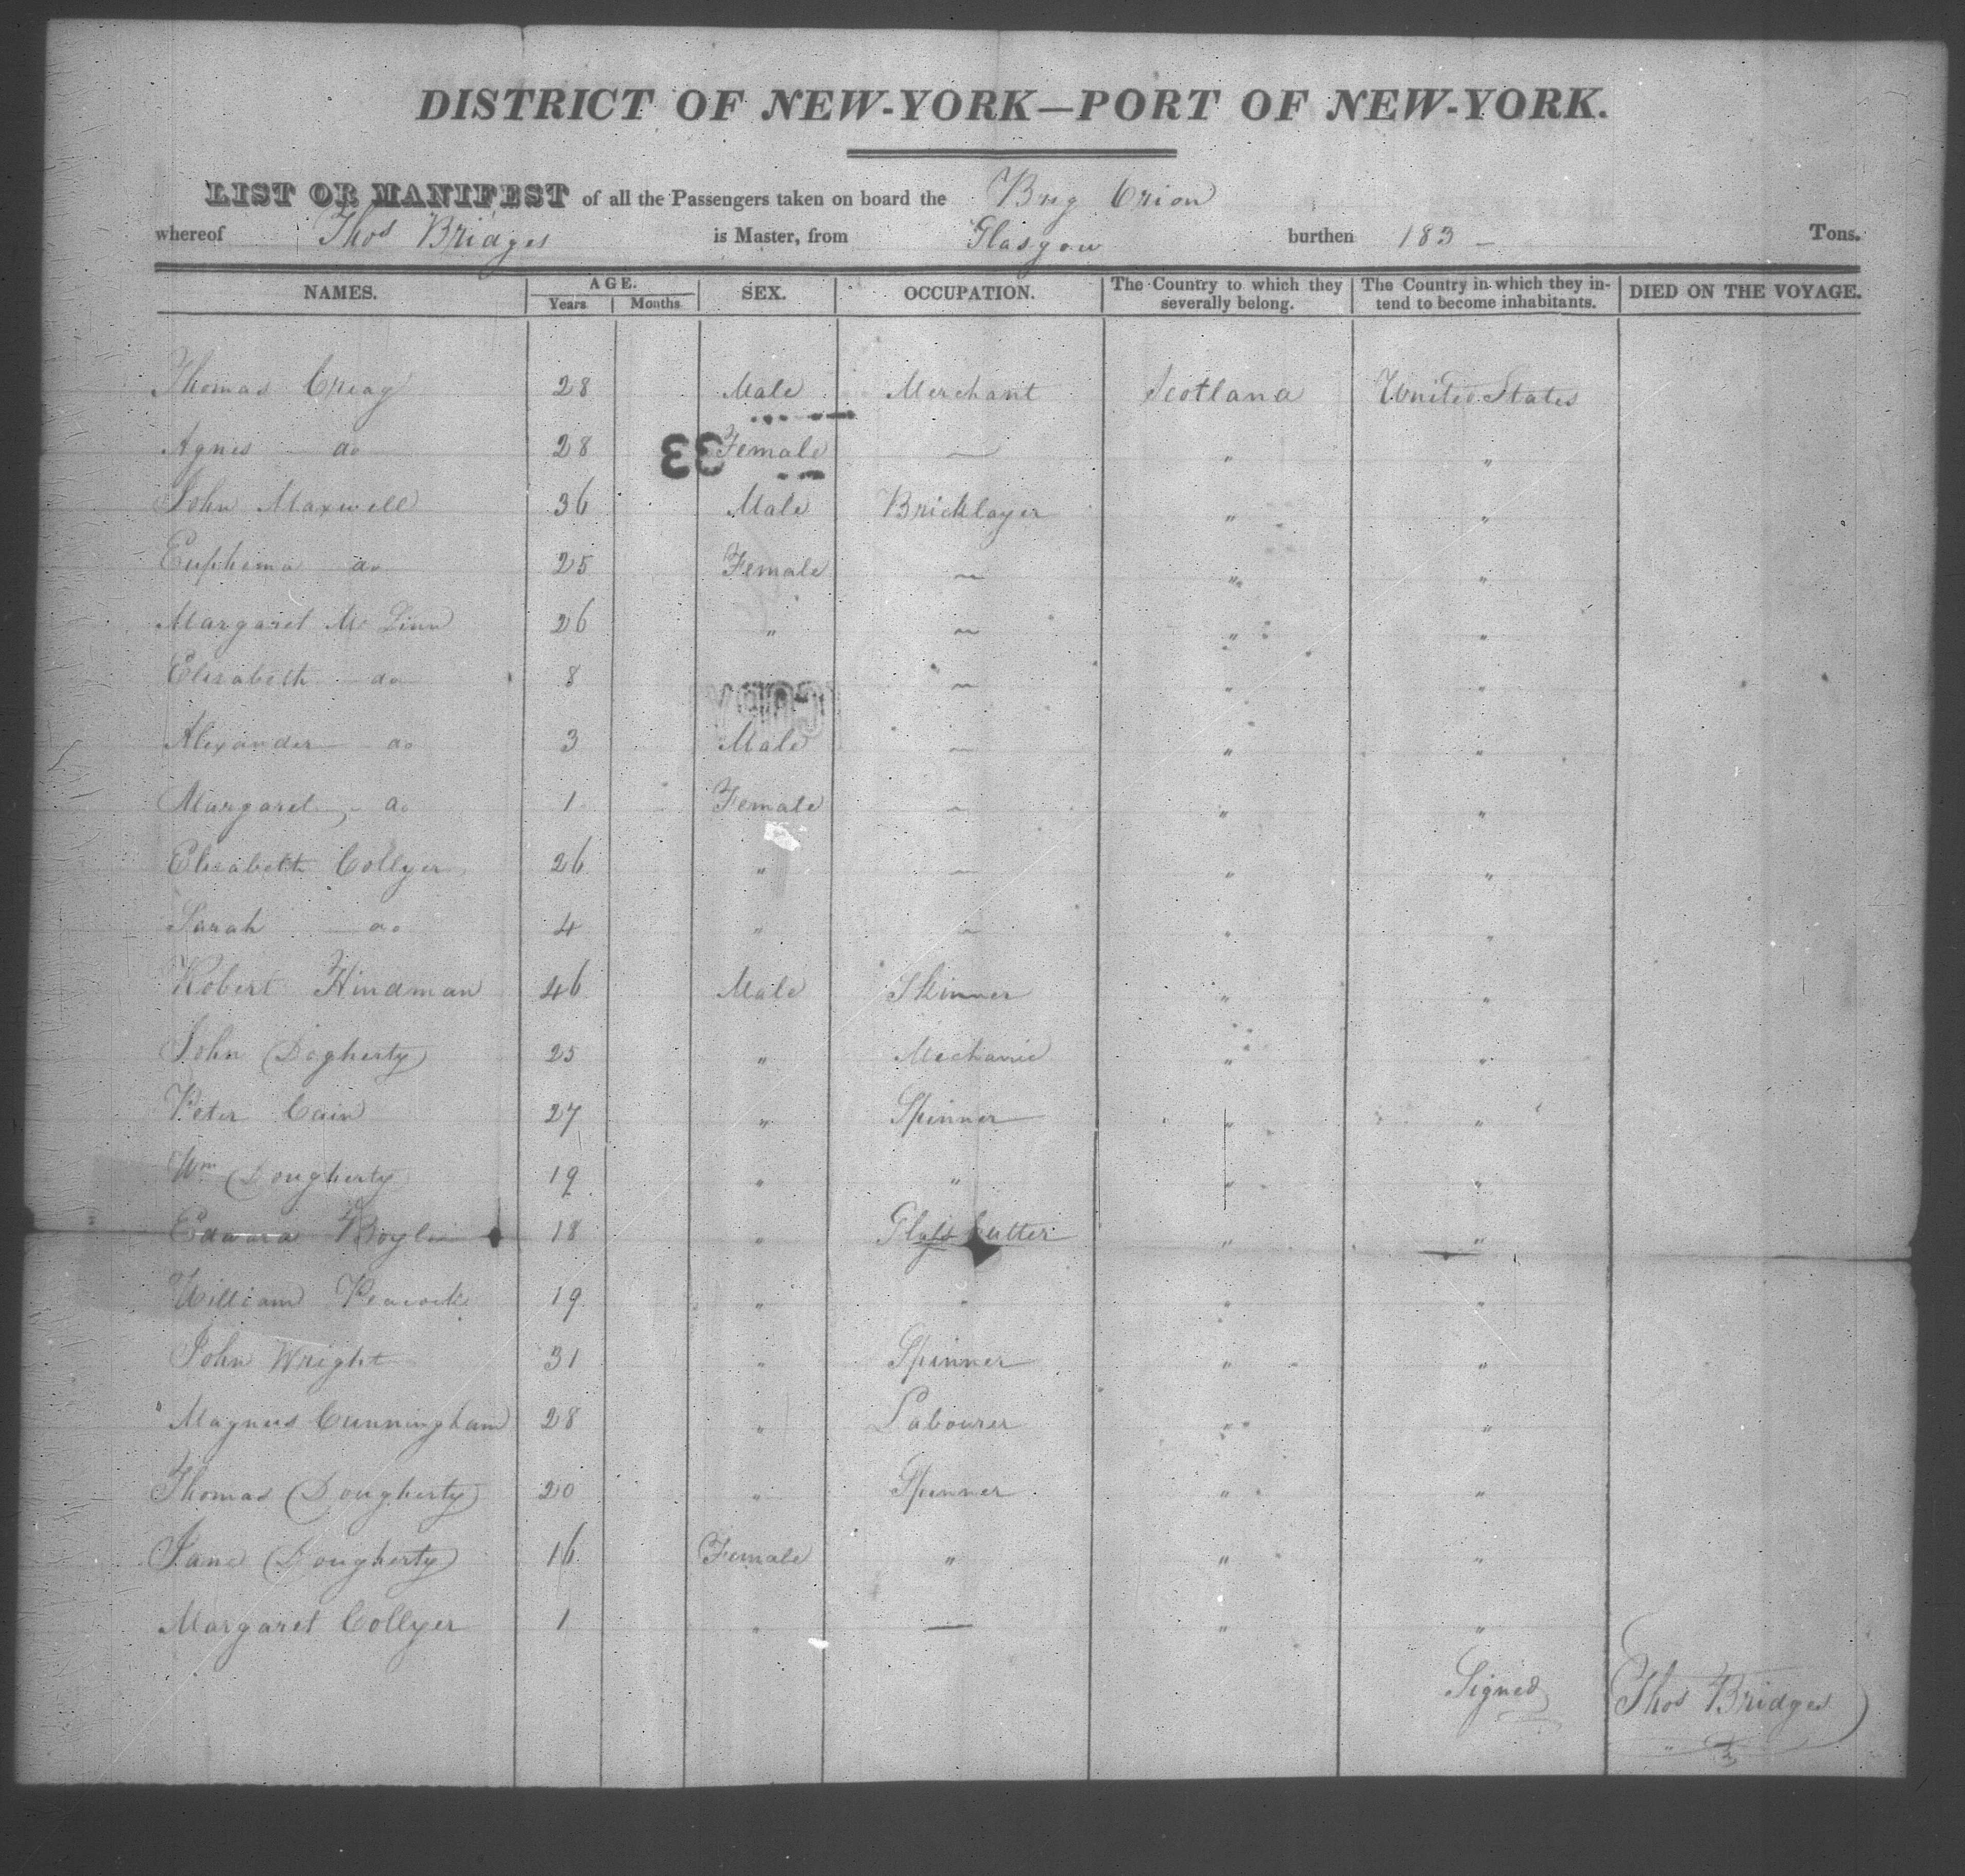 DISTRICT OF NEW-YORK—PORT OF NEW-YORK.
LIST OR MANIFEST of all the Passengers taken on board the Brig Orion
whereof Thos Bridges is Master, from Glasgow burthen 183 — Tons.
NAMES. AGE. Years Months SEX. OCCUPATION. The Country to which they severally belong. The Country in which they intend to become inhabitants. DIED ON THE VOYAGE.
Thomas Creag 28 Male Merchant Scotland United States
33
Agnes do 28 Female — " "
John Maxwell 36 Male Bricklayer " "
Euphema do 25 Female ~ " "
Margaret Mc Linn 26 " ~ " "
Elisabeth do 8 ~ " "
Alexander do 3 Male ~ " "
Margaret do 1 Female ~ " "
Elisabeth Collyer 26 " ~ " "
Sarah do 4 " ~ " "
Robert Hindman 46 Male Skinner " "
John Dogherty 25 " Mechanic " "
Peter Cain 27 " Spinner " "
Wm Dougherty 19 " " " "
Edward Boyle 18 " Glass Cutter " "
William Peacock 19 " " " "
John Wright 31 " Spinner " "
Magnus Cunningham 28 " Labourer " "
Thomas Dougherty 20 " Spinner " "
Jane Dougherty 16 Female " " "
Margaret Collyer 1 " — " "
Signed Thos Bridges